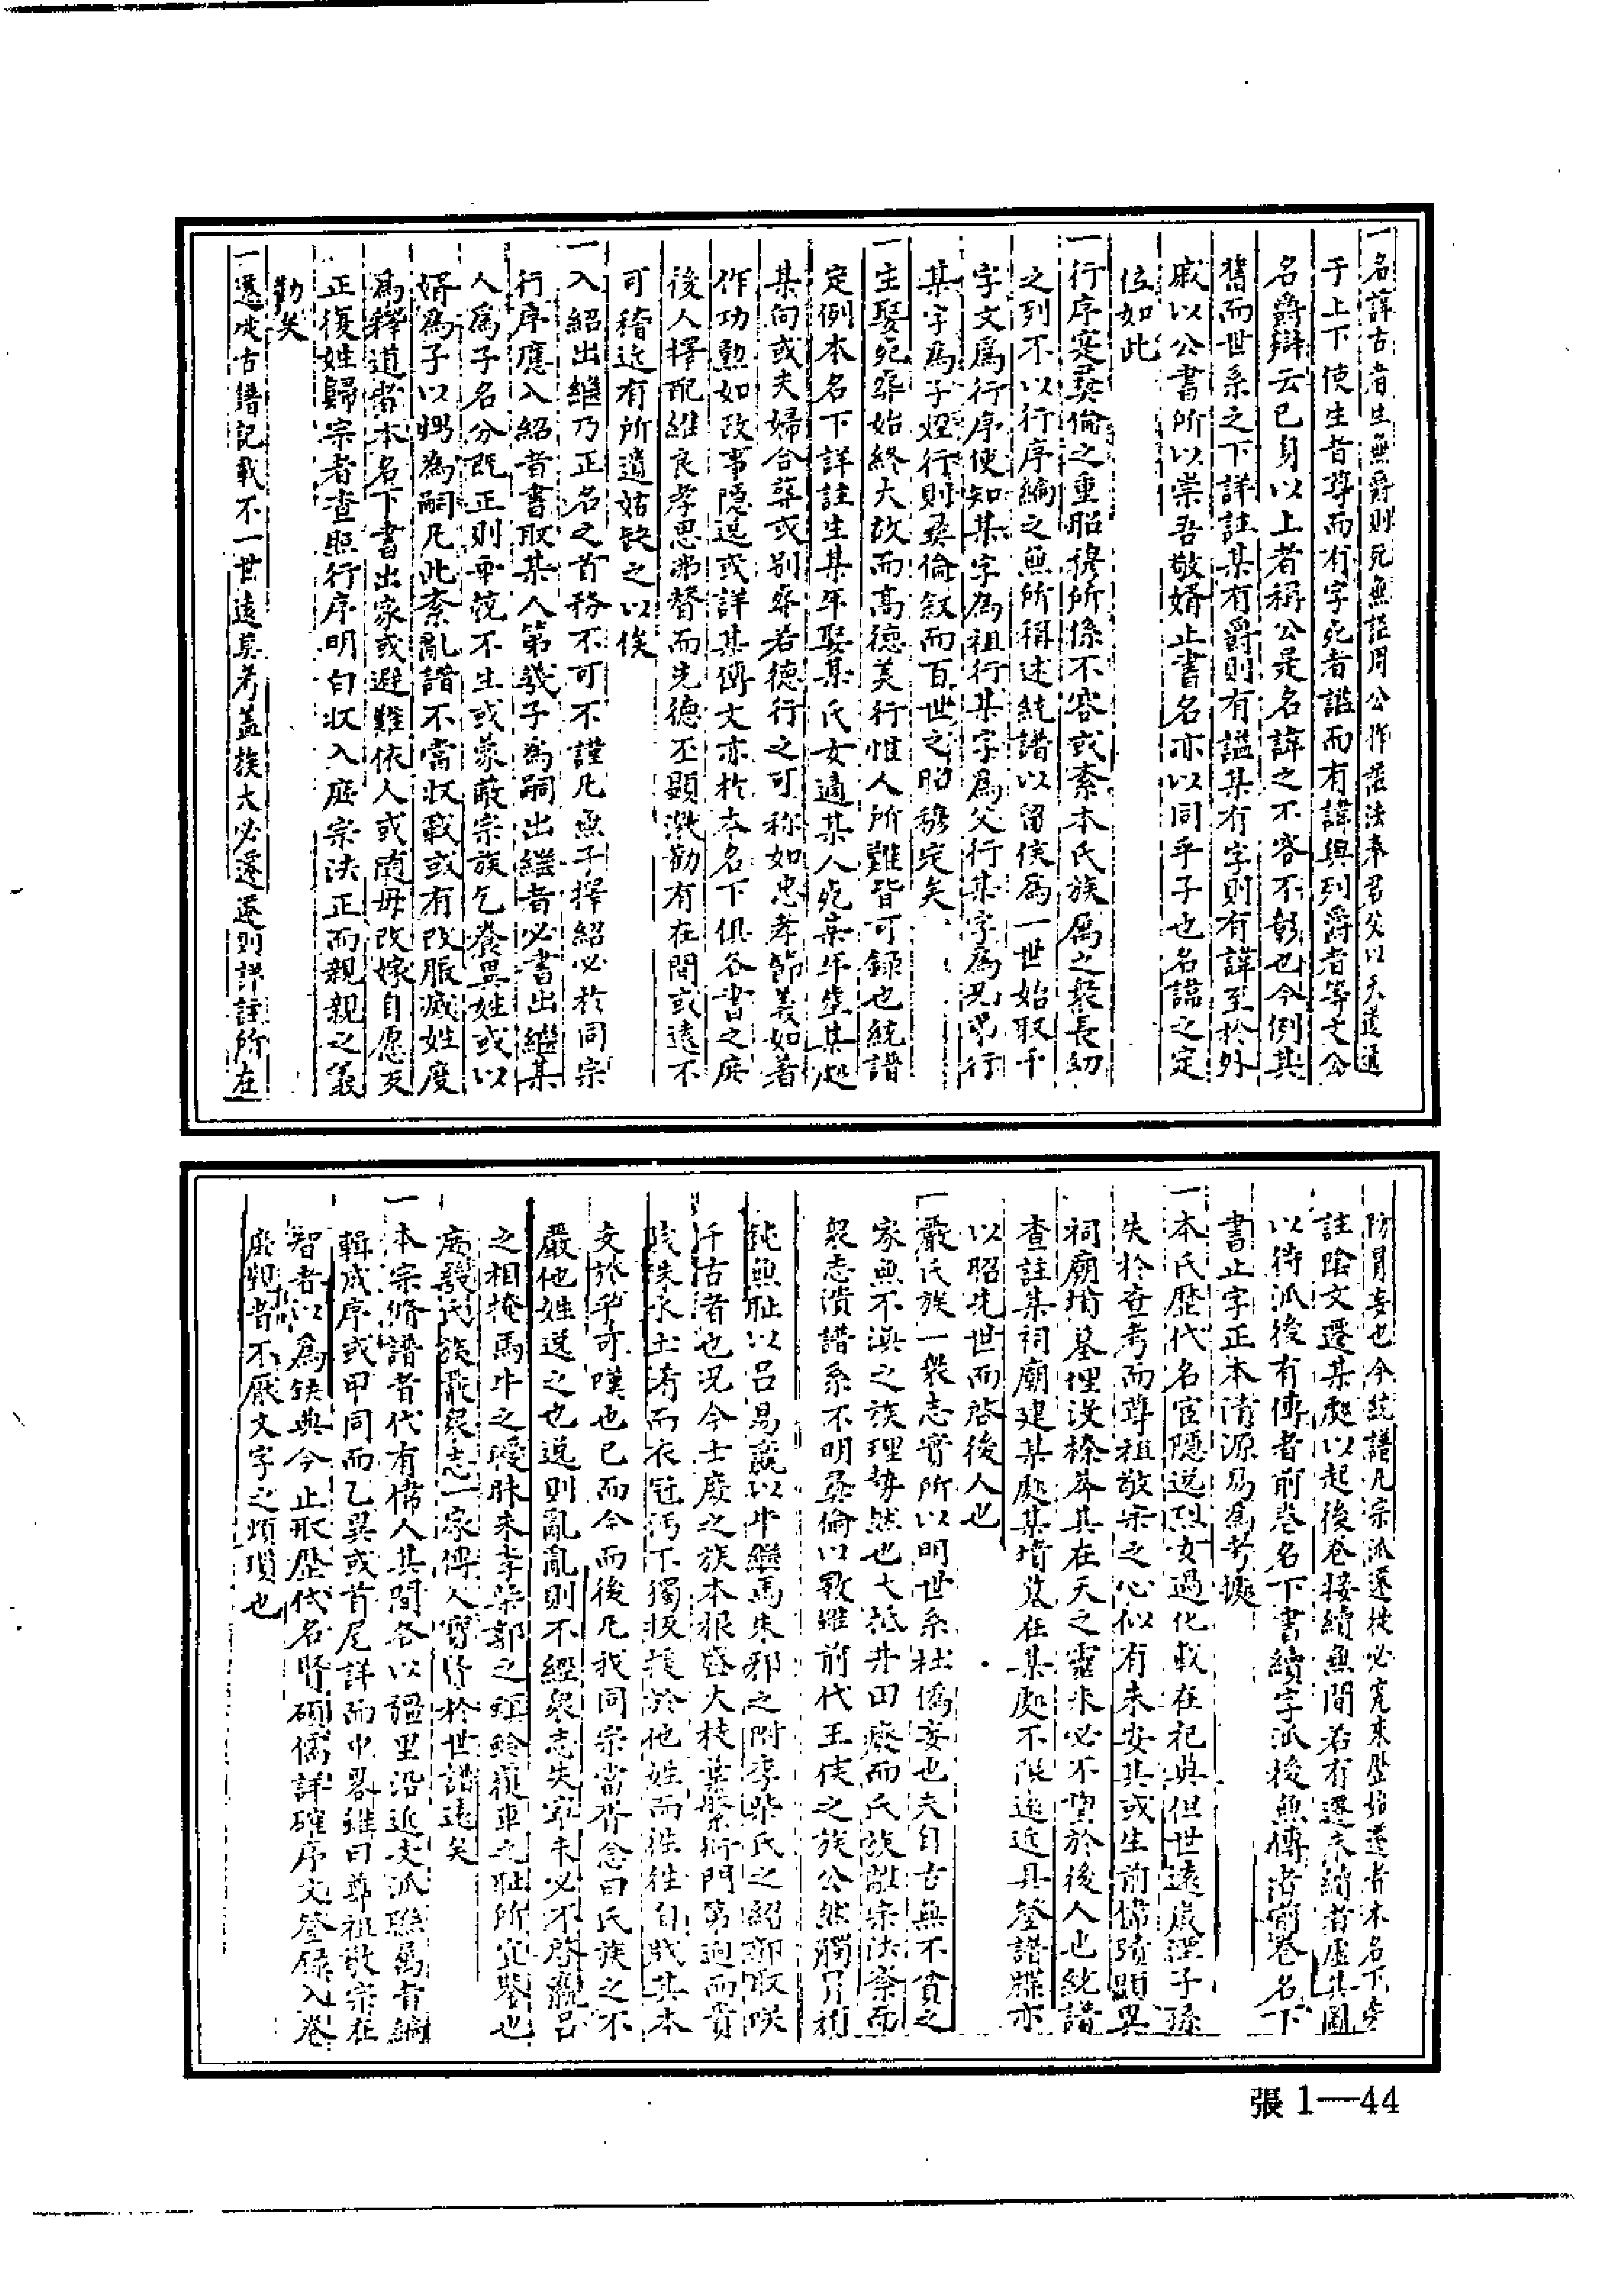 一名諱古者生無爵則死無諡周公作諡法奉君父以天道通
于上下使生者尊而有字死者諡而有諱與列爵者等文公
名爵辯云已身以上者稱公是名諱之不容不彰也今例其
舊而世系之下詳註某有爵則有諡某有字則有諱至於外
戚以公書所以崇吾敬婿止書名亦以同乎子也名諱之定
位如此
一行序寔彝倫之重昭穆所係不容或紊本氏族属之衆長幼
之列不以行序編之無所稱述統譜以留侯為一世始取千
字文爲行序使知某字為祖行某字爲父行某字爲兄弟行
某字爲子姪行則彝倫敍而百世之昭穆定矣
一生娶死塟始終大故而高德美行惟人所難皆可録也統譜
定例本名下詳註生某年娶某氏女適某人死某年塟某処
某向或夫婦合葬或别塟若德行之可称如忠孝節義如着
作功勲如政事隱逸或詳某傳文亦於本名下俱各書之庻
後人擇配維良孝思弗替而先德丕顯激勸有在間或遠不
可稽近有所遺姑缺之以俟
一入紹出繼乃正名之首務不可不謹凡無子擇紹必於同宗
行序應入紹者書取某人第幾子為嗣出繼者必書出繼某
人爲子名分既正則争競不生或蒙蔽宗族乞養異姓或以
婿爲子以甥為嗣凡此紊亂譜不當収載或有改服滅姓度
爲釋道當本名下書出家或避難依人或隨母改嫁自愿反
正復姓歸宗者查照行序明白収入庻宗法正而親親之義
勸矣
一遷徙古譜記載不一世遠莫考盖族大必遷遷則詳註所在
防冒妄也今統譜凡宗派遷徙必究來歷始遷者本名下旁
註陰文遷某處以起後卷接續無間若有遷未續者虚其圖
以待派後有傳者前卷名下書續字派後無傳者前卷名下
書止字正本清源易爲考據
一本氏歷代名宦隱逸烈女過化載在祀典但世遠歲湮子孫
失於查考而尊祖敬宗之心似有未安其或生前偉蹟顯異
祠廟墳墓埋没榛莽其在天之靈未必不望於後人也統譜
查註某祠廟建某處某墳墓在某処不限遠近具登譜牒亦
以昭先世而啓後人也
一嚴氏族一衆志實所以明世系杜僞妄也夫自古無不貧之
家無不渙之族理勢然也大抵井田廢而氏族離宗法紊而
衆志潰譜系不明彝倫以斁雖前代王侯之族公然觸冒禮
鈍無耻以吕易嬴以牛繼馬朱邪之附李柴氏之紹郭取咲
千古者也况今士庻之族本根盛大枝葉繁衍門第迥而貴
賤殊水土淆而衣冠污不獨扳援於他姓而徃徃自戕其本
支於乎可嘆也已而今而後凡我同宗當胥念曰氏族之不
嚴他姓逆之也逆則亂亂則不經衆志失寧未必不啓嬴吕
之相掩馬牛之曖昧朱李柴郭之 覆車之耻所宜鑒也
庻幾氏族嚴衆志一家傳人寳胥於世譜遠矣
一本宗脩譜者代有偉人其間各以疆里沿近支派聯属者編
輯成序或甲同而乙異或首尾詳而中畧雖曰尊祖敬宗在
智者以爲缺典今止取歷代名賢碩儒詳確序文登録入卷
庻觀者不厭文字之煩瑣也
張 1—44